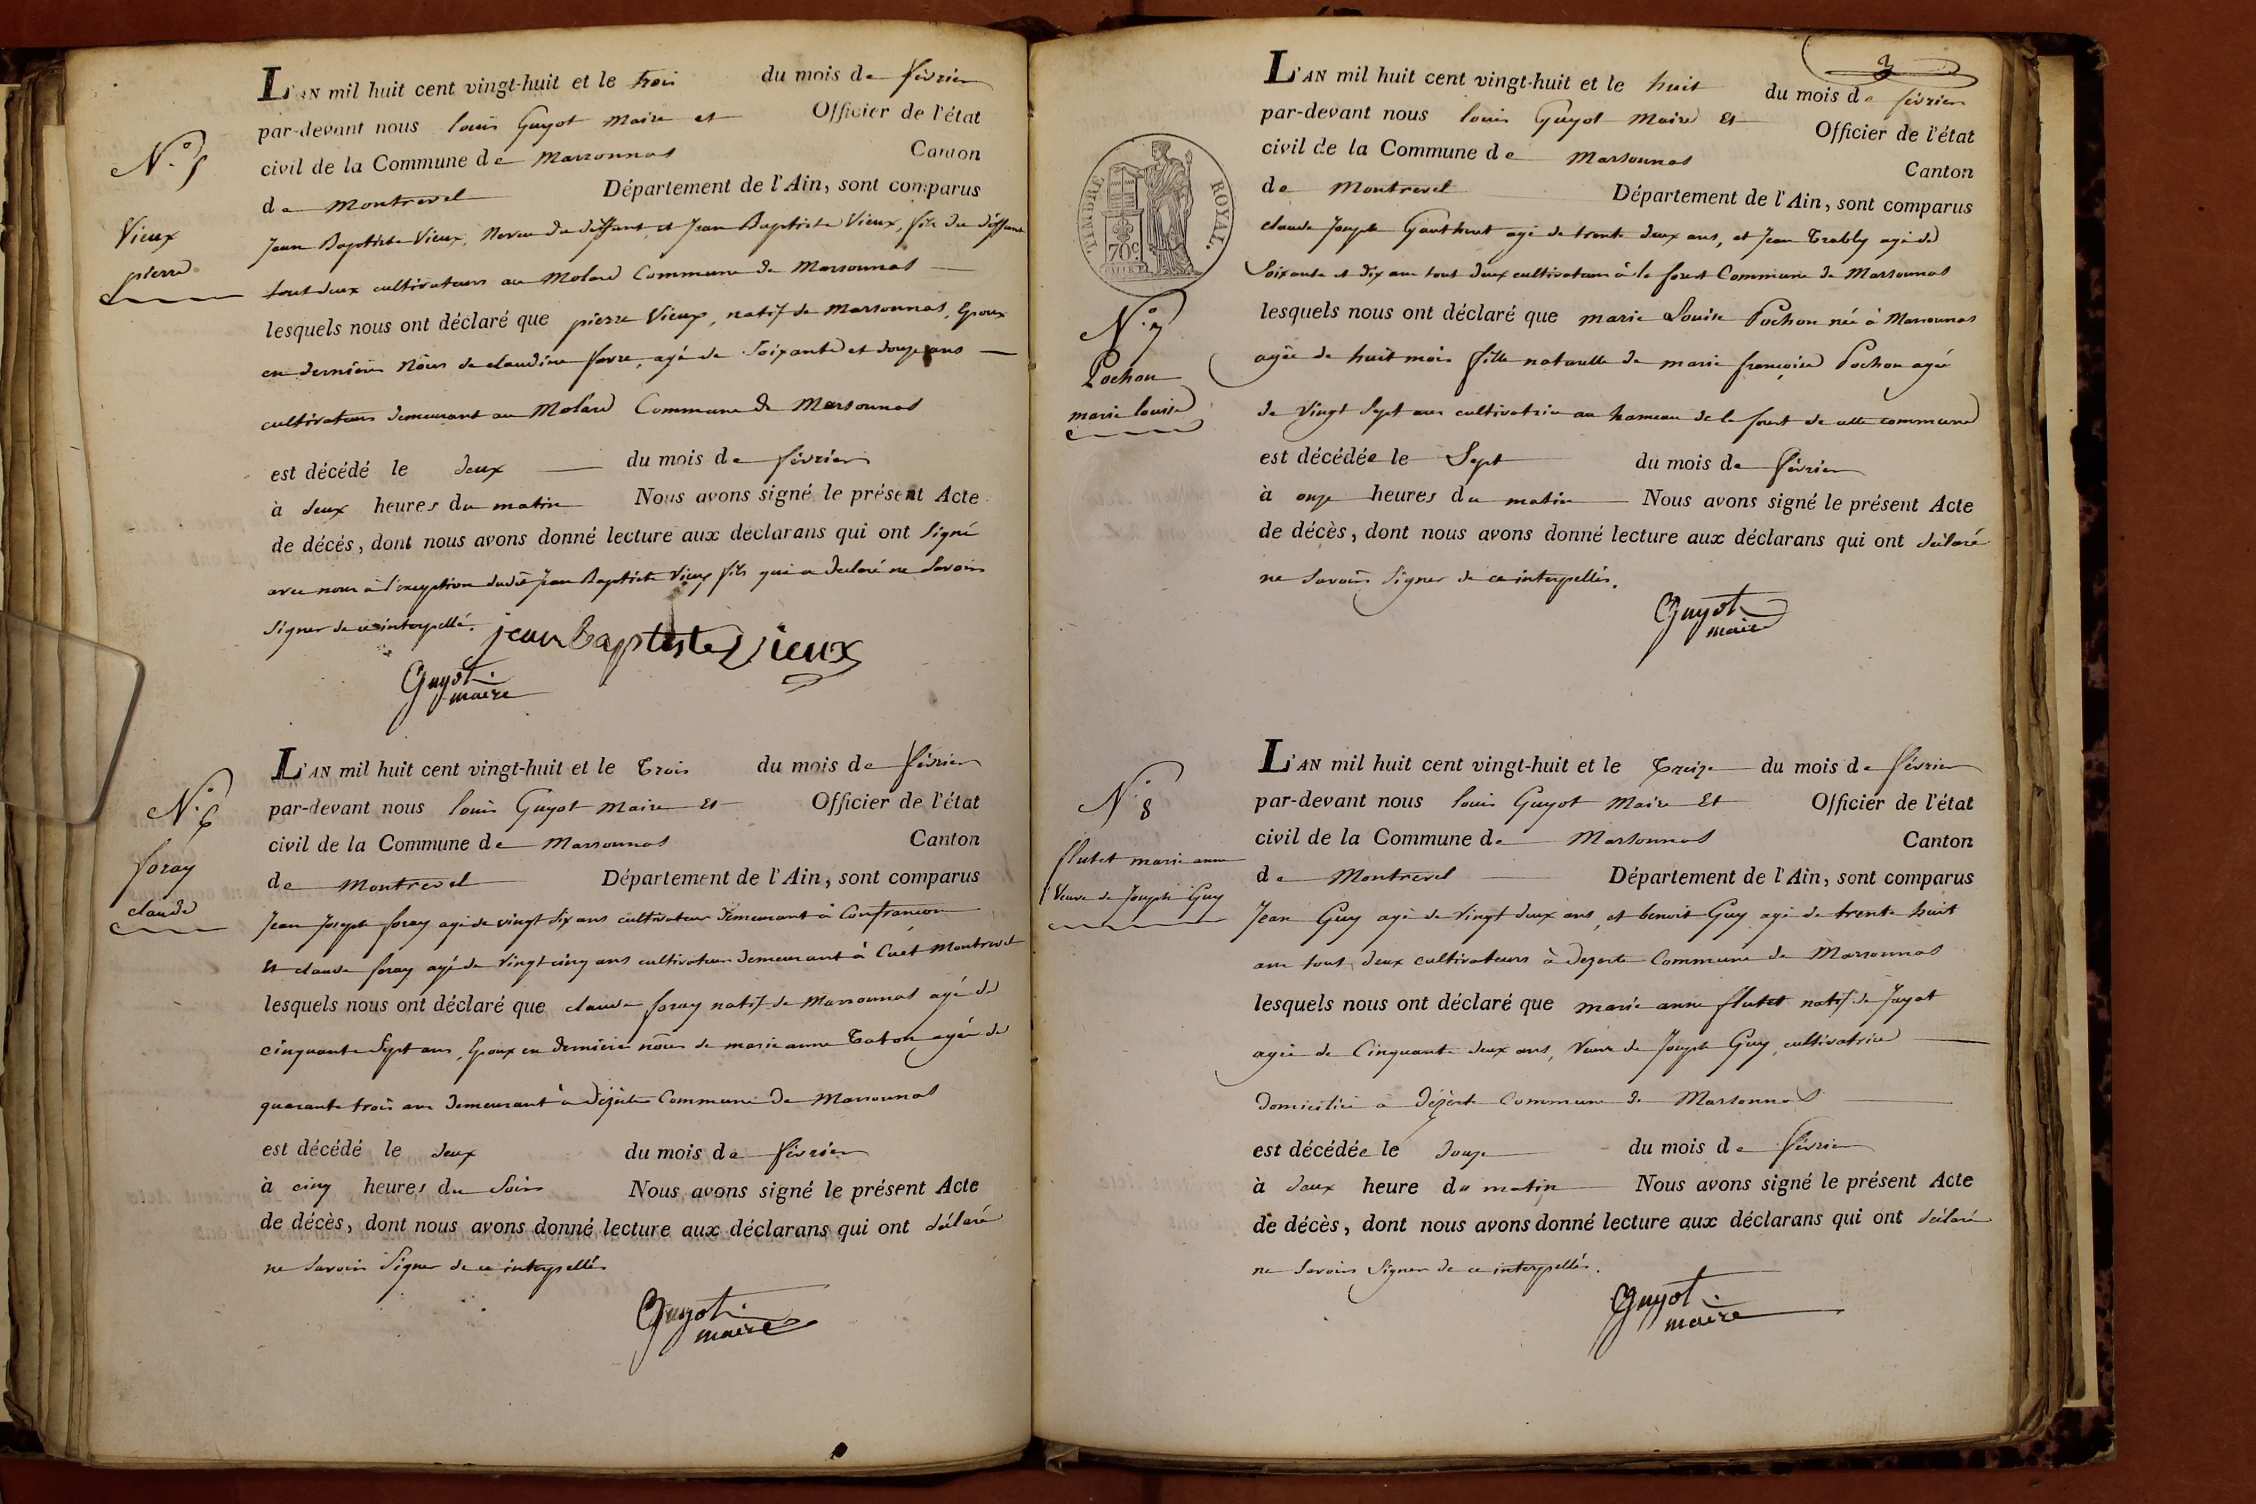 N.° 5
Vieux
pierre
L'AN mil huit cent vingt-huit et le trois du mois de février
par-devant nous louis Guyot Maire et Officier de l'état
civil de la Commune de Marsonnas Canton
de Montrevel Département de l'Ain, sont comparus
Jean Baptiste Vieux, Neveu du deffunt et Jean Baptiste Vieux, fils du deffunt
tout deux cultivateurs au Molard Commune de Marsonnas
lesquels nous ont déclaré que pierre Vieux, natif de Marsonnas, Epoux
en dernières Nôces de claudine favre, agé de Soixante et douze ans
cultivateur demeurant au Molard Commune de Marsonnas
est décédé le deux du mois de février
à deux heures du matin Nous avons signé le présent Acte
de décès, dont nous avons donné lecture aux déclarans qui ont Signé
avec nous à l'exception dudit Jean Baptiste Vieux fils qui a declaré ne Savoir
Signer de ce interpellé.
jean Baptiste Vieux
Guyot
maire
N.° 6
foray
claude
L'AN mil huit cent vingt-huit et le Trois du mois de février
par-devant nous louis Guyot Maire Et Officier de l'état
civil de la Commune de Marsonnas Canton
de Montrevel Département de l'Ain, sont comparus
Jean Joseph foray agé de vingt six ans cultivateur demeurant à Confrançon
Et claude foray agé de vingt cinq ans cultivateur demeurant à Cuet Montrevel
lesquels nous ont déclaré que claude foray natif de Marsonnas agé de
cinquante Sept ans, Epoux en dernière nôces de marie anne Taton agée de
quarante trois ans demeurant à Dézerte Commune de Marsonnas
est décédé le deux du mois de février
à cinq heures du Soir Nous avons signé le présent Acte
de décès, dont nous avons donné lecture aux déclarans qui ont déclaré
ne Savoir Signer de ce interpellés
Guyot
maire
3
TIMBRE ROYAL.
70 c.
N.° 7
Pochon
marie louise
L'AN mil huit cent vingt-huit et le huit du mois de février
par-devant nous louis Guyot Maire Et Officier de l'état
civil de la Commune de Marsonnas Canton
de Montrevel Département de l'Ain, sont comparus
claude Joseph Gauthret agé de trente deux ans, et Jean Trably agé de
Soixante et dix ans tout deux cultivateurs à la forest Commune de Marsonnas
lesquels nous ont déclaré que marie Louise Pochon née à Marsonnas
agée de huit mois fille naturelle de marie françoise Pochon agée
de Vingt Sept ans cultivatrice au hameau de la forest de cette commune
est décédée le Sept du mois de février
à onze heures du matin Nous avons signé le présent Acte
de décès, dont nous avons donné lecture aux déclarans qui ont déclaré
ne Savoir Signer de ce interpellés.
Guyot
maire
N.° 8
flutet marie anne
Veuve de Joseph Guy
L'AN mil huit cent vingt-huit et le Treize du mois de février
par-devant nous louis Guyot Maire Et Officier de l'état
civil de la Commune de Marsonnas Canton
de Montrevel Département de l'Ain, sont comparus
Jean Guy agé de Vingt deux ans, et benoit Guy agé de trente huit
ans tout deux cultivateurs à dezerte Commune de Marsonnas
lesquels nous ont déclaré que marie anne flutet natif de Jayat
agée de Cinquante deux ans, Veuve de Joseph Guy, cultivatrice
domiciliée à dézerte Commune de Marsonnas
est décédée le douze du mois de février
à deux heure du matin Nous avons signé le présent Acte
de décès, dont nous avons donné lecture aux déclarans qui ont déclaré
ne Savoir Signer de ce interpellés.
Guyot
maire